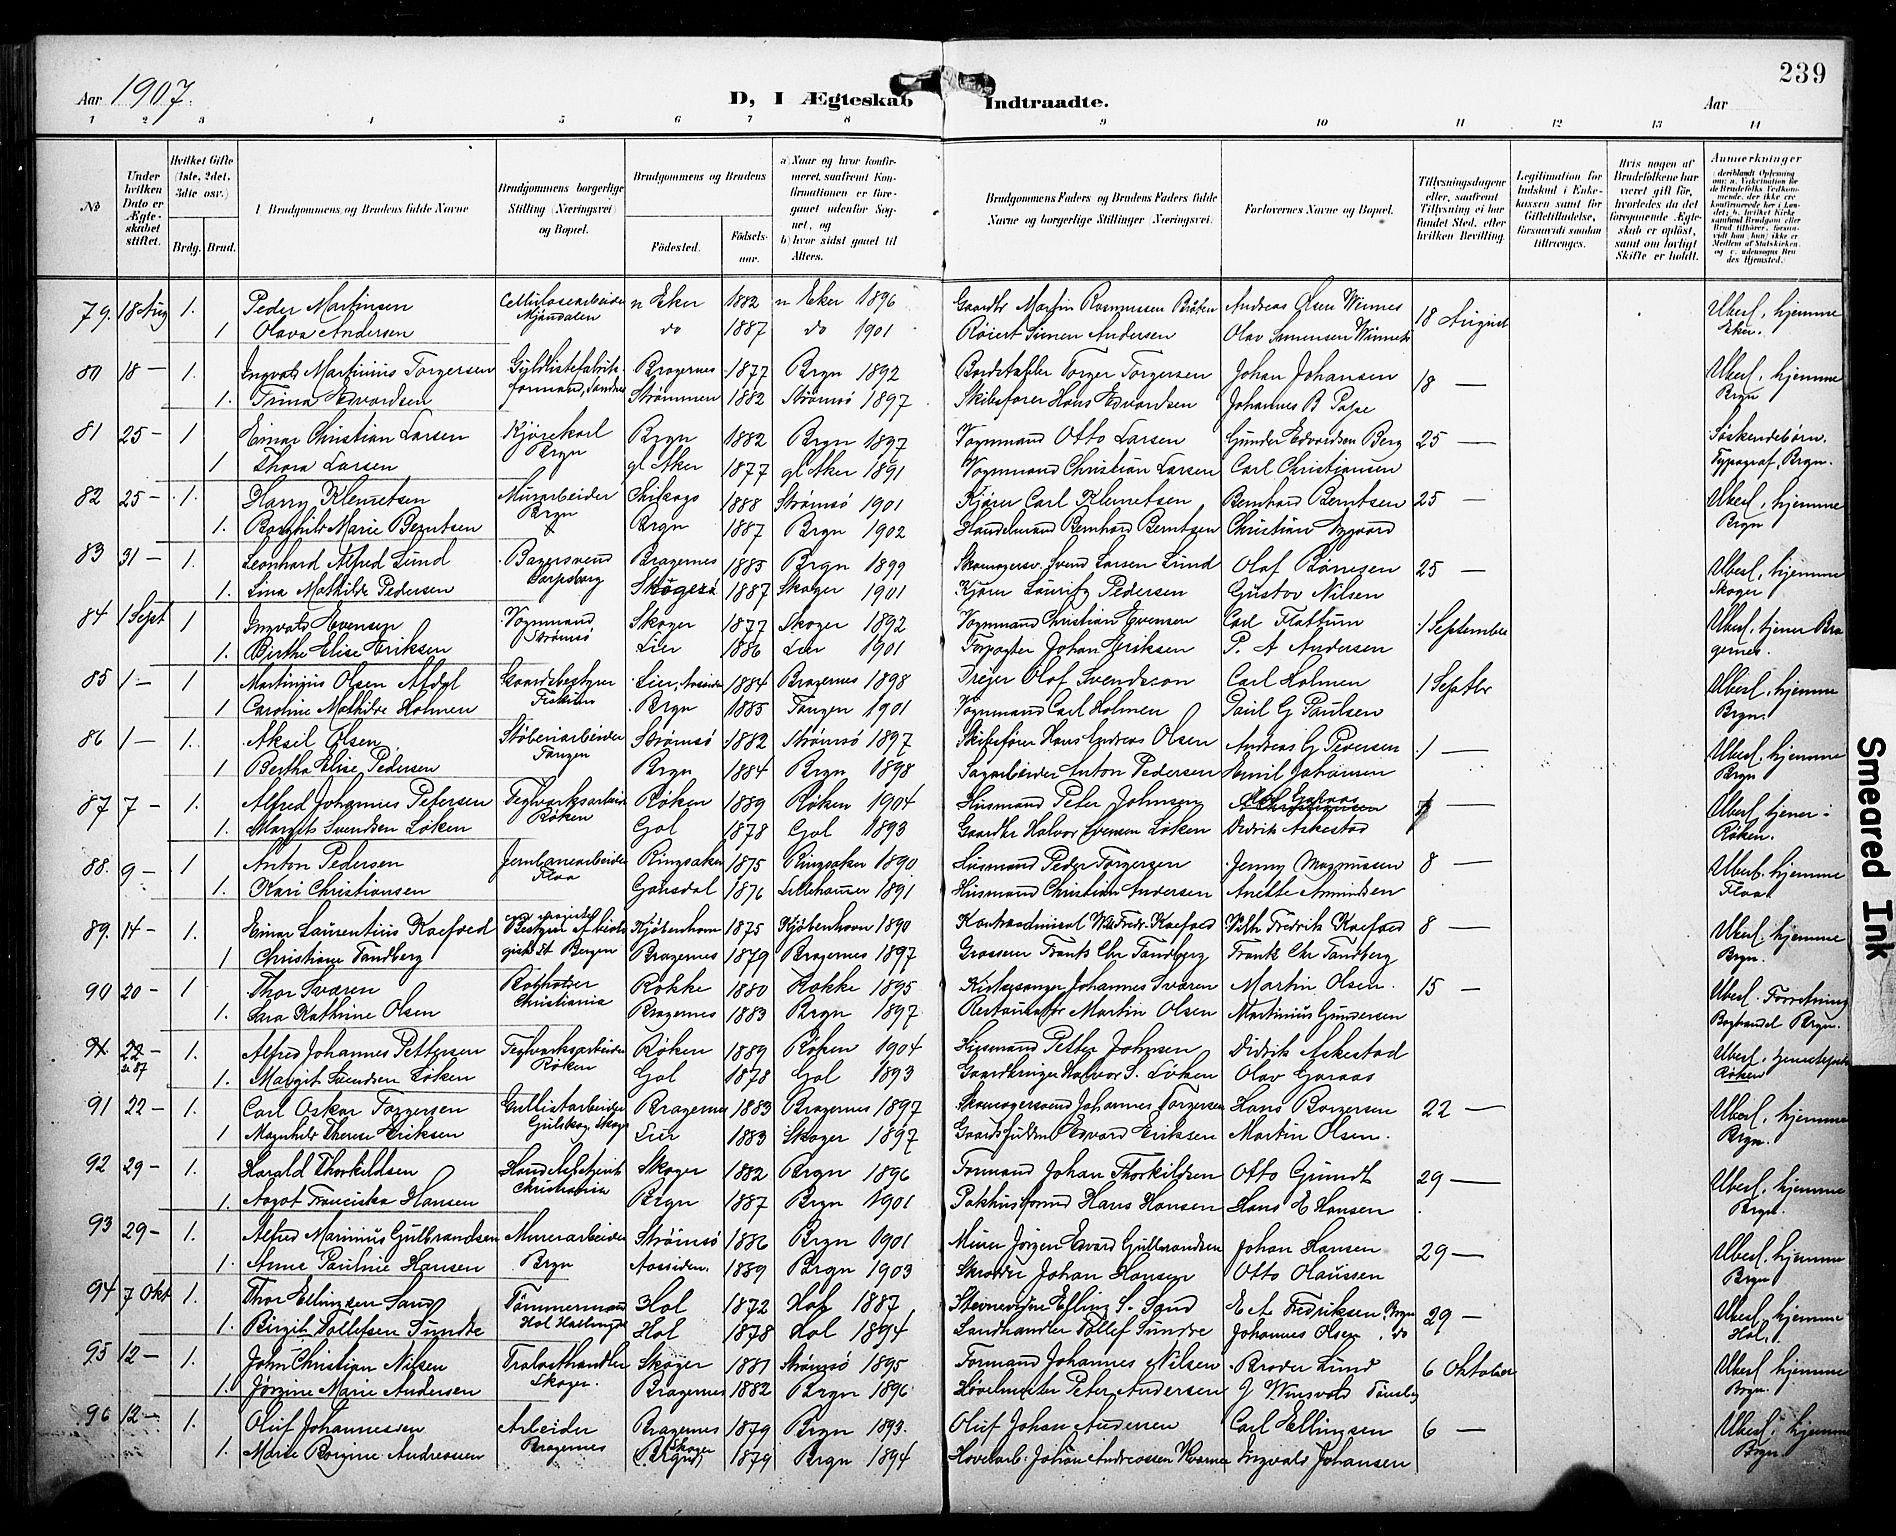 239
Aar 1907.
D, I Ægteskab Indtraadte.
Aar
1 2 3 4 5 6 7 8 9 10 11 12 13 14
№
Under hvilken Dato er Ægteskabet stiftet.
Hvilket Gifte (1ste, 2det, 3die osv.)
Brdg. Brud.
1 Brudgommens og Brudens fulde Navne
Brudgommens borgerlige Stilling (Næringsvei) og Bopæl.
Brudgommens og Brudens
Fødested. Fødselsaar.
a) Naar og hvor konfirmeret, saafremt Konfirmationen er foregaaet udenfor Sognet, og
b) hvor sidst gaaet til Alters.
Brudgommens Faders og Brudens Faders fulde Navne og borgerlige Stillinger (Næringsvei).
Forlovernes Navne og Bopæl.
Tillysningsdagene eller, saafremt Tillysning ei har fundet Sted, efter hvilken Bevilling.
Legitimation for Indskud i Enkekassen samt for Giftetilladelse, forsaavidt saadan tiltrænges.
Hvis nogen af Brudefolkene har været gift før, hvorledes da det foregaaende Ægteskab er opløst, samt om lovligt Skifte er holdt.
Anmerkninger
79. 18 Aug 1. Peder Martinsen Cellulosearbeider Mjøndalen n Eker 1882 n Eker 1896 Gaardbr Martin Rasmussen Andreas Olsen Winnes 18 August Uberl, hjemme Eker.
1 Olava Andersen do 1887 do 1901 Røiert Simen Andersen Olav
80 18 — 1. Ingvald Martinius Torgersen Gyldlistefabrik formand, Bragernes 1877 Brgn 1892 Bordstabler Torger Torgersen Johan Johansen 18 — Uberl, hjemme Brgn
1. Trina Edvardsen Strømmen 1882 Strømsø 1897 Skibsfører Hans Edvardsen Johannes B Pape
81 25 — 1 Einar Christian Larsen Kjørekarl Brgn Brgn 1882 Brgn 1897 Vognmand Otto Larsen Gunder Edvardsen Berg 25 — Søskendebørn.
1 Thora Larsen gl Aker 1877 gl Aker 1891 Vognmand Christian Larsen Carl Christiansen Typograf, Brgn.
82 25 — 1. Harry Klemetsen Murarbeider Brgn Chikago 1888 Strømsø 1901 Kjører Carl Klemetsen Bernhard Berntsen 25 — Uberl, hjemme Brgn
1. Borghild Marie Berntsen Brgn 1887 Brgn 1902 Handelmand Bernhard Berntsen Christian Nygaard
83 31 — 1. Leonhard Alfred Lund Bagersvend Sarpsborg Bragernes 1885 Brgn 1899 Skomagersv. Svend Larsen Lund Olaf 25 — Uberl, hjemme Skoger
1. Lina Mathilde Pedersen 1887 Skoger 1901 Kjører Lauritz Pedersen Gustav Nilsen
84 1 Sept 1 Ingvald Evensen Vognmand Strømsø Skoger 1877 Skoger 1892 Vognmand Christian Evensen Carl Flattum 1 September Uberl, tjener Bragernes.
1. Birthe Elise Eriksen Lier 1886 Lier 1901 Forpagter Johan Eriksen P. A Andersen
85 1 — 1 Martinius Olsen Gaardsbestyrer Lier, Aassiden 1884 Bragernes 1898 Dreier Olof Svendsson Carl Holmen 1 Septbr Uberl, hjemme Brgn.
1 Caroline Mathilde Holmen Brgn 1885 Tangen 1901 Vognmand Carl Holmen Paul G Paulsen
86 1 — 1. Aksel Olsen Støberiarbeider Tangen Strømsø 1882 Strømsø 1897 Skibsfører Hans Andreas Olsen Andreas G Pedersen 1 — Uberl, hjemme Brgn
1 Bertha Elise Pedersen Brgn 1884 Brgn 1898 Sagarbeider Anton Pedersen Emil Johansen
87 7 — 1. Alfred Johannes Petersen Teglværksarbeid Røken Røken 1889 Røken 1904 Husmand Peter Johnsen — Uberl, tjener i Røken.
1. Margit Svendsen Løken Gol 1878 Gol 1893 Gaardbr Halvor Svensen Løken Didrik Askestad
88. 9 — 1 Anton Pedersen Jernbanearbeider Flaa Ringsaker 1875 Ringsaker 1890 Husmand Peder Torgersen Jenny Magnussen 8 — Uberl. hjemme Flaa
1. Kari Christiansen Gausdal 1876 Lillehamer 1891 Husmand Christian Andersen Anette Amundsen
89. 14 — 1. Einar Laurentius Koefoed Bestyrer af biologisk St. Bergen Kjøbenhavn 1875 Kjøbenhavn 1890 Kontreadmiral Wilh Fredr. Koefoed Wilh Fredrik Koefoed 8 — Uberl. hjemme Brgn.
1 Christiane Tandberg Bragernes 1879 Bragernes 1897 Grosserer Frantz Chr Tandberg Frantz Chr Tandberg
90 20 — 1 Thor Svaren Bogholder Christiania Rokke 1880 Rokke 1895 Kirkesanger Johannes Svaren Martin Olsen. 15 — Uberl. Forretning Boghandel Brgn.
1. Sara Kathrine Olsen Bragernes 1883 Brgn 1897 Restauratør Martin Olsen Martinius Gundersen
22 — se 87 1. Alfred Johannes Pettersen Teglværksarbeider Røken Røken 1889 Røken 1904 Husmand Petter Johnsen Didrik Askestad Uberl. Røken
1. Margit Svendsen Løken Gol 1878 Gol 1893 Gaardbruger Halvor S. Løken Olav Garaas
91 22 — 1. Carl Oskar Torgersen Gullistarbeider Gulskog, Skoger Bragernes 1883 Bragernes 1897 Skomagersvend Johannes Torgersen Hans Borgersen 22 — Uberl, hjemme Brgn.
1 Magnhild Therese Eriksen Lier 1883 Skoger 1897 Edvard Eriksen Martin Olsen.
92 29 — 1. Harald Thorkildsen Christiania Skoger 1882 Brgn 1896 Formand Johan Thorkildsen Otto Grundt 29 — Uberl, hjemme Brgn.
1. Aagot Franciska Hansen Brgn 1887 Brgn 1901 Pakhusformd Hans Hansen Hans E Hansen
93 29 — 1. Alfred Marinius Gulbrandsen Murerarbeider Brgn Strømsø 1886 Brgn 1901 Murer Jørgen Edvard Gulbrandsen Johan Hansen 29 — Uberl. hjemme Brgn
1. Anne Pauline Hansen Aassiden. 1889 Brgn 1903 Skrædder Johan Hansen Otto Claussen
94 7 Okt 1. Thor Ellingsen Sand Tømmermand Hol Hallingd Hol 1872 Hol 1887 Elling S. Sand E A Fredriksen, Brgn 29 — Uberl, hjemme Hol.
1. Birgit Tollefsen Sundre Hol 1878 Hol 1894 Landhandler Tollef Sundre Johannes Olsen, do
95 12 — 1. John Christian Nilsen Trælasthandler Skoger. Skoger 1881 Strømsø 1895 Formand Johannes Nilsen Broder Lund 6 Oktober Uberl, hjemme Brgn.
1. Jørgine Marie Andersen Bragernes 1882 Brgn 1896 Høvelmester Peter Andersen G Winsvold Tønsberg
96 12 — 1. Oluf Johannessen Arbeider Bragernes Bragernes 1879 Brgn 1893. Oluf Johan Andersen Carl Ellingsen 6 — Uberl, hjemme Brgn
1. Marie Borgine Andreassen Skoger 1879 Brgn 1894 Høvelarb. Johan Andreassen Ingvald Johansen
Smeared Ink